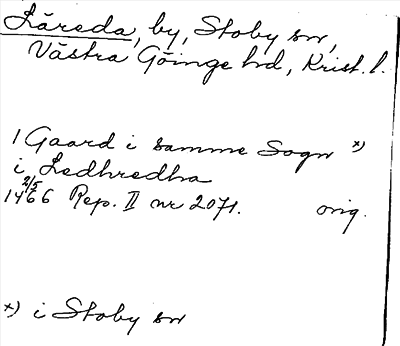 Läreda, by, Stoby sn,
Västra Göinge hd, Krist. l.
1 Gaard i samme Sogn x)
i Ledhredha
2/5
1466 Rep. II nr 2071. orig.
x) i Stoby sn